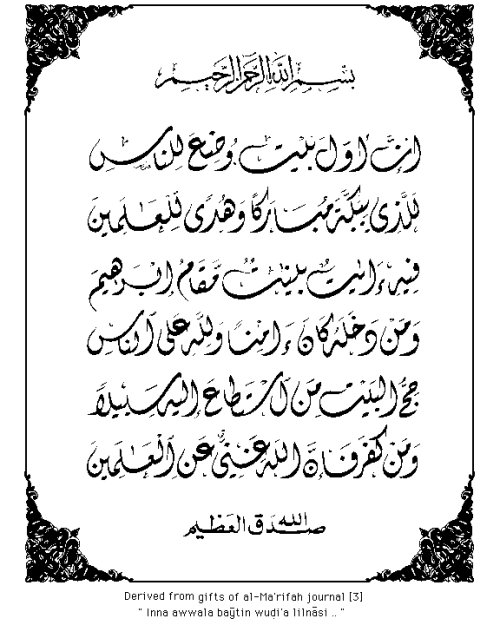 بِسْمِ اللَّهِ الرَّحْمَنِ الرَّحِيمِ
إِنَّ أَوَّلَ بَيْتٍ وُضِعَ لِلنَّاسِ
لَلَّذِي بِبَكَّةَ مُبَارَكًا وَهُدًى لِلْعَالَمِينَ
فِيهِ ءَايَٰتٌ بَيِّنَٰتٌ مَّقَامُ إِبْرَٰهِيمَ
وَمَن دَخَلَهُ كَانَ ءَامِنًا وَلِلَّهِ عَلَى ٱلنَّاسِ
حِجُّ الْبَيْتِ مَنِ ٱسْتَطَاعَ إِلَيْهِ سَبِيلًا
وَمَن كَفَرَ فَإِنَّ اللَّهَ غَنِيٌّ عَنِ ٱلْعَٰلَمِينَ
صدق الله العظيم
Derived from gifts of al-Ma'rifah journal [3]
" Inna awwala baȳtin wuḍi'a lilnāsi .. "